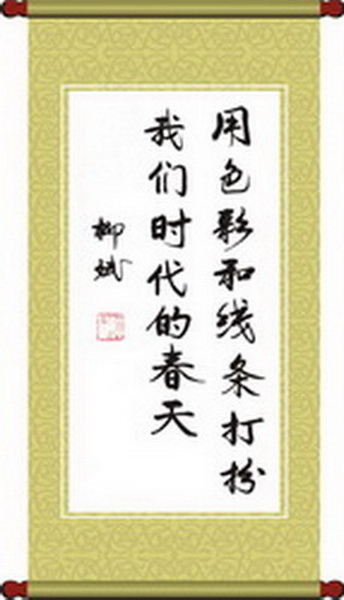 用色彩和线条打扮
我们时代的春天
柳斌